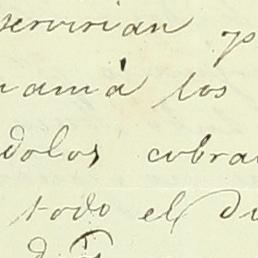 servirian p
mamá los
dolos cobra
todo el Di